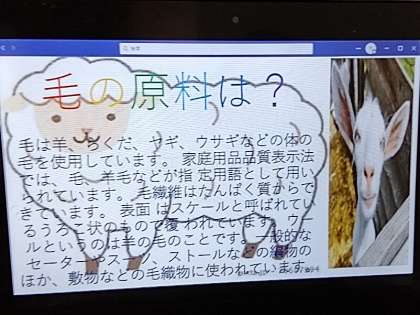 毛の原料は？
毛は羊、らくだ、ヤギ、ウサギなどの体の
毛を使用しています。 家庭用品品質表示法
では、毛、羊毛などが指 定用語として用い
られています。 毛繊維はたんぱく質からで
きています。 表面 はスケールと呼ばれてい
るうろこ状のもので覆 われています。 ウー
ルというのは羊の毛のことです。一般的な
セーターやスーツ、ストールなどの編物の
ほか、敷物などの毛織物に使われています。